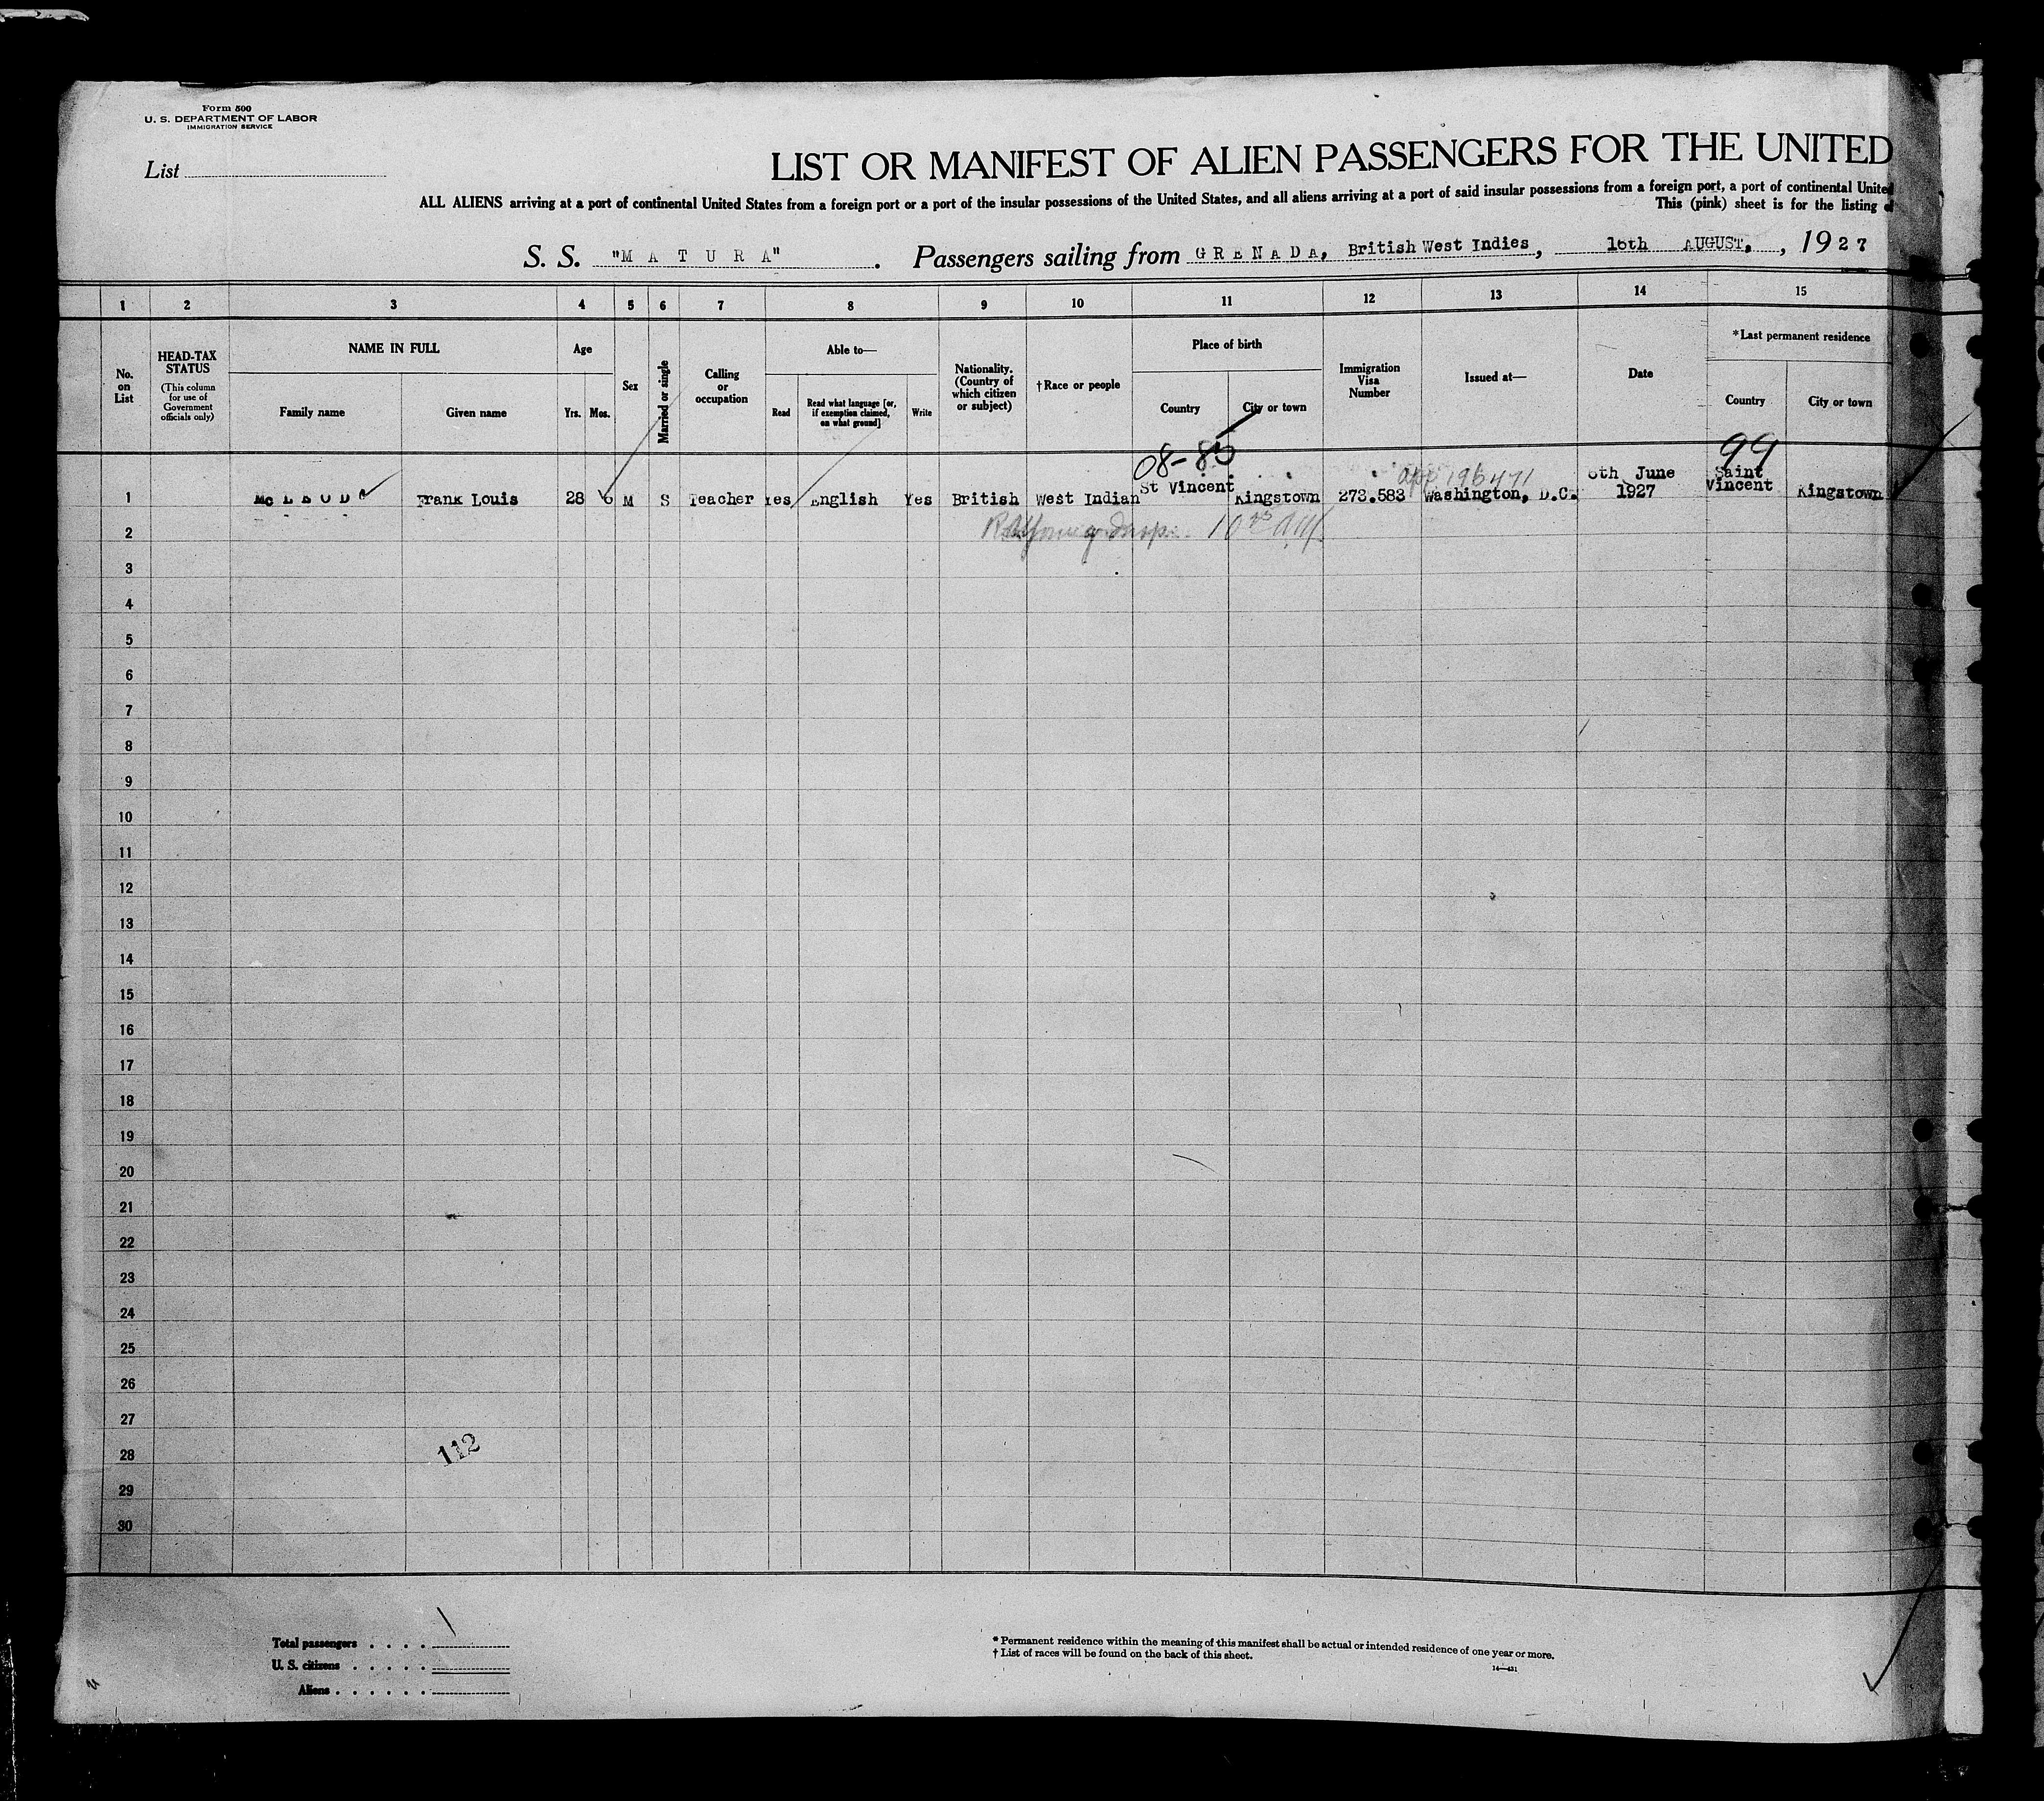 Form 500
U. S. DEPARTMENT OF LABOR
IMMIGRATION SERVICE
List
LIST OR MANIFEST OF ALIEN PASSENGERS FOR THE UNITED
ALL ALIENS arriving at a port of continental United States from a foreign port or a port of the insular possessions of the United States, and all aliens arriving at a port of said insular possessions from a foreign port, a port of continental United
This (pink) sheet is for the listing of
S. S. "M A T U R A". Passengers sailing from G R E N A D A, British West Indies, 16th AUGUST, , 1927
1 2 3 4 5 6 7 8 9 10 11 12 13 14 15
No. on List
HEAD-TAX STATUS
(This column for use of Government officials only)
NAME IN FULL
Family name
Given name
Age
Yrs. Mos.
Sex
Married or single
Calling or occupation
Able to—
Read
Read what language [or, if exemption claimed, on what ground]
Write
Nationality. (Country of which citizen or subject)
†Race or people
Place of birth
Country
City or town
Immigration Visa Number
Issued at—
Date
*Last permanent residence
Country
City or town
08-85
99
app 196471
1 Mc L E O D Frank Louis 28 6 M S Teacher Yes English Yes British West Indian St Vincent Kingstown 273.583 Washington, D.C. 8th June 1927 Saint Vincent Kingstown
2
3
4
5
6
7
8
9
10
11
12
13
14
15
16
17
18
19
20
21
22
23
24
25
26
27
28
29
30
112
Total passengers . . . .
U. S. citizens . . . . .
Aliens . . . . . .
* Permanent residence within the meaning of this manifest shall be actual or intended residence of one year or more.
† List of races will be found on the back of this sheet.
14—431